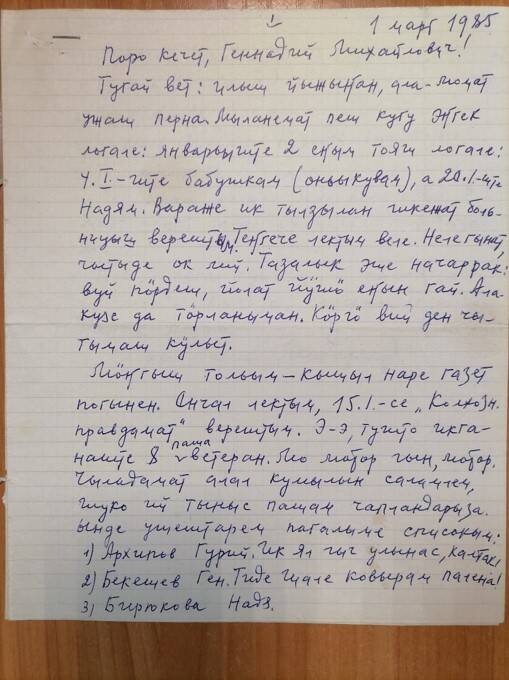 1
1 март 1985
Поро кече, Геннадий Михайлович!
Тугай вет: илыш йыжыҥан, ала-можат
ужаш перна. Мыланемат пеш кугу эҥгек
логале: январьыште 2 еҥым тояш логале:
4.I-ште бабушкам (оньыкувам), а 20.I-ште
Надям. Вараже ик тылзылан шкежат боль-
ницыш верештым. Теҥгече лектым веле. Неле гынат,
чытыде ок лий. Тазалык эше начаррак:
вуй пӧрдеш, йолат йӱшӧ еҥын гай. Ала
кузе да тӧрланыман. Кӧргӧ вий ден чы-
тымаш кӱлеш.
Мӧҥгыш тольым – кышыл наре газет
погынен. Ончал лектым, 15.I.-се „Колхозн.
правдамат" верештым. Э-э, тушто икга-
наште 8 паша ветеран. Мо мотор чын, мотор.
Чыладамат алал кумылын саламлем,
шуко ий тыныс пашам чапландарыза.
Ынде ушештарем палалыме списокым:
1) Архипов Гурий. Ик ял гыч улынас, калтак!
2) Бекешев Ген. Тиде шале ковырам палена!
3) Бирюкова Надя.